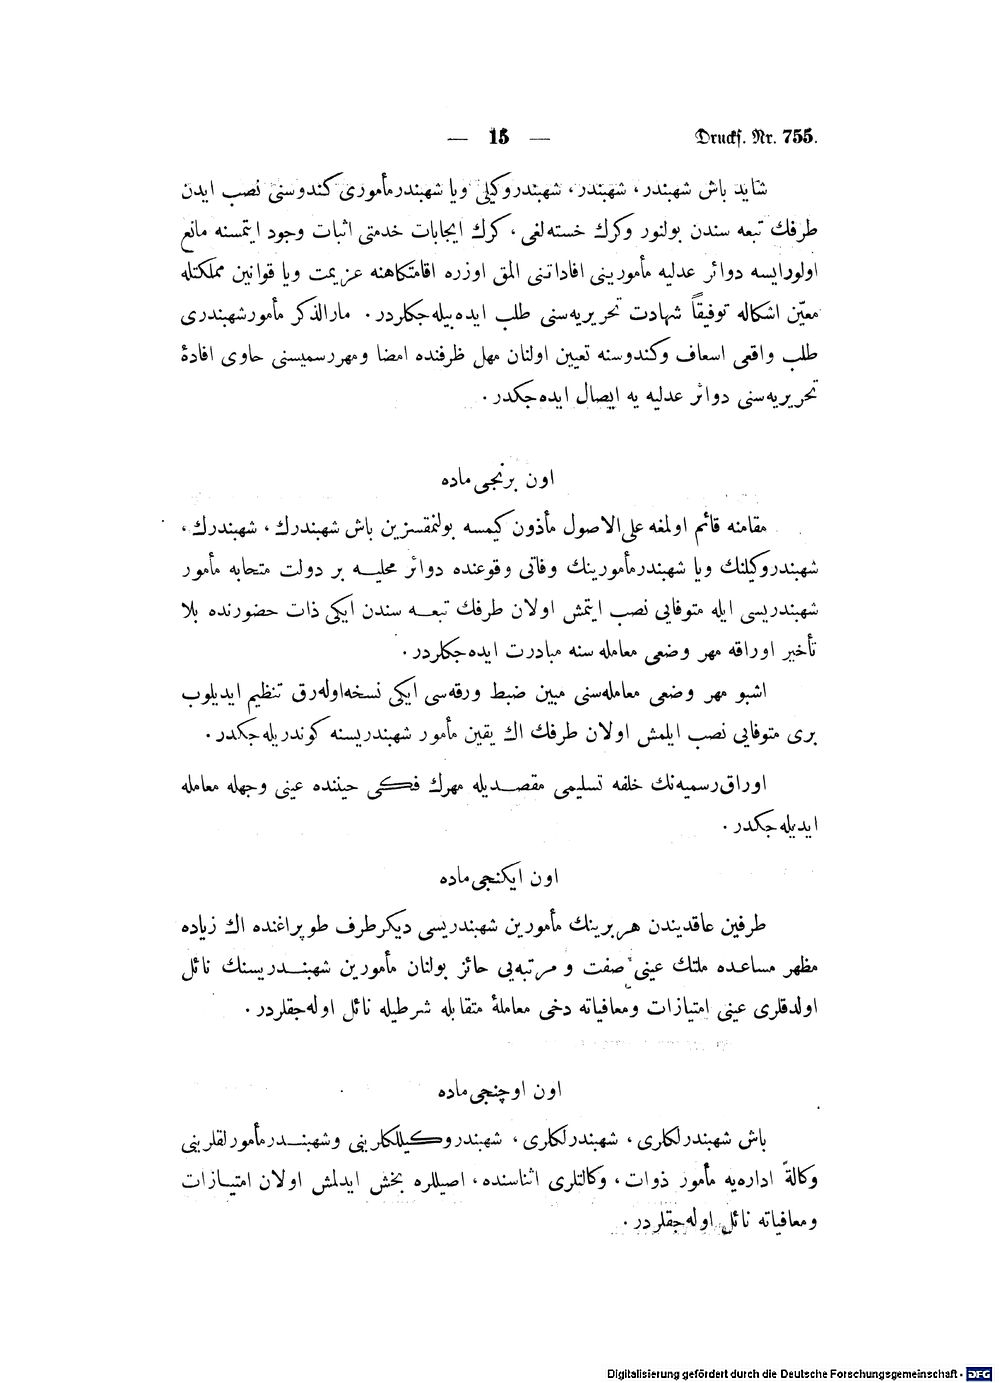 — 15 —
Drucks. Nr. 755.
شاید باش شهبندر، شهبندر، شهبندروكیلی ویا شهبندرمأموری كندوسنی نصب ایدن
طرفك تبعه سندن بولنور وكرك خسته لغی، كرك ایجابات خدمتی اثبات وجود ایتمسنه مانع
اولورایسه دوائر عدلیه مأمورینی افاداتنی المق اوزره اقامتكاهنه عزیمت ویا قوانین مملكتله
معیّن اشكاله توفیقاً شهادت تحریریه‌سنی طلب ایده‌بیله‌جكلردر. مارالذكر مأمورشهبندری
طلب واقعی اسعاف وكندوسنه تعیین اولنان مهل ظرفنده امضا ومهررسمیسنی حاوی افادۀ
تحریریه‌سنی دوائر عدلیه یه ایصال ایده‌جكدر.
اون برنجی ماده
مقامنه قائم اولمغه علی‌الاصول مأذون كیمسه بولنمقسزین باش شهبندرك، شهبندرك،
شهبندروكیلنك ویا شهبندرمأمورینك وفاتی وقوعنده دوائر محلیه بر دولت متحابه مأمور
شهبندریسی ایله متوفایی نصب ایتمش اولان طرفك تبعه سندن ایكی ذات حضورنده بلا
تأخیر اوراقه مهر وضعی معامله سنه مبادرت ایده‌جكلردر.
اشبو مهر وضعی معامله‌سنی مبین ضبط ورقه‌سی ایكی نسخه‌اوله‌رق تنظیم ایدیلوب
بری متوفایی نصب ایلمش اولان طرفك اك یقین مأمور شهبندریسنه كوندریله‌جكدر.
اوراق‌رسمیه‌نك خلفه تسلیمی مقصدیله مهرك فكی حیننده عینی وجهله معامله
ایدیله‌جكدر.
اون ایكنجی ماده
طرفین عاقدیندن هربرینك مأمورین شهبندریسی دیكرطرف طوپراغنده اك زیاده
مظهر مساعده ملتك عینی صفت و مرتبه‌یی حائز بولنان مأمورین شهبندریسنك نائل
اولدقلری عینی امتیازات ومعافیاته دخی معاملۀ متقابله شرطیله نائل اوله‌جقلردر.
اون اوچنجی ماده
باش شهبندرلكلری، شهبندرلكلری، شهبندروكیللكلرینی وشهبندرمأمورلقلرینی
وكالةً اداره‌یه مأمور ذوات، وكالتلری اثناسنده، اصیللره بخش ایدلمش اولان امتیازات
ومعافیاته نائل اوله‌جقلردر.
Digitalisierung gefördert durch die Deutsche Forschungsgemeinschaft - DFG